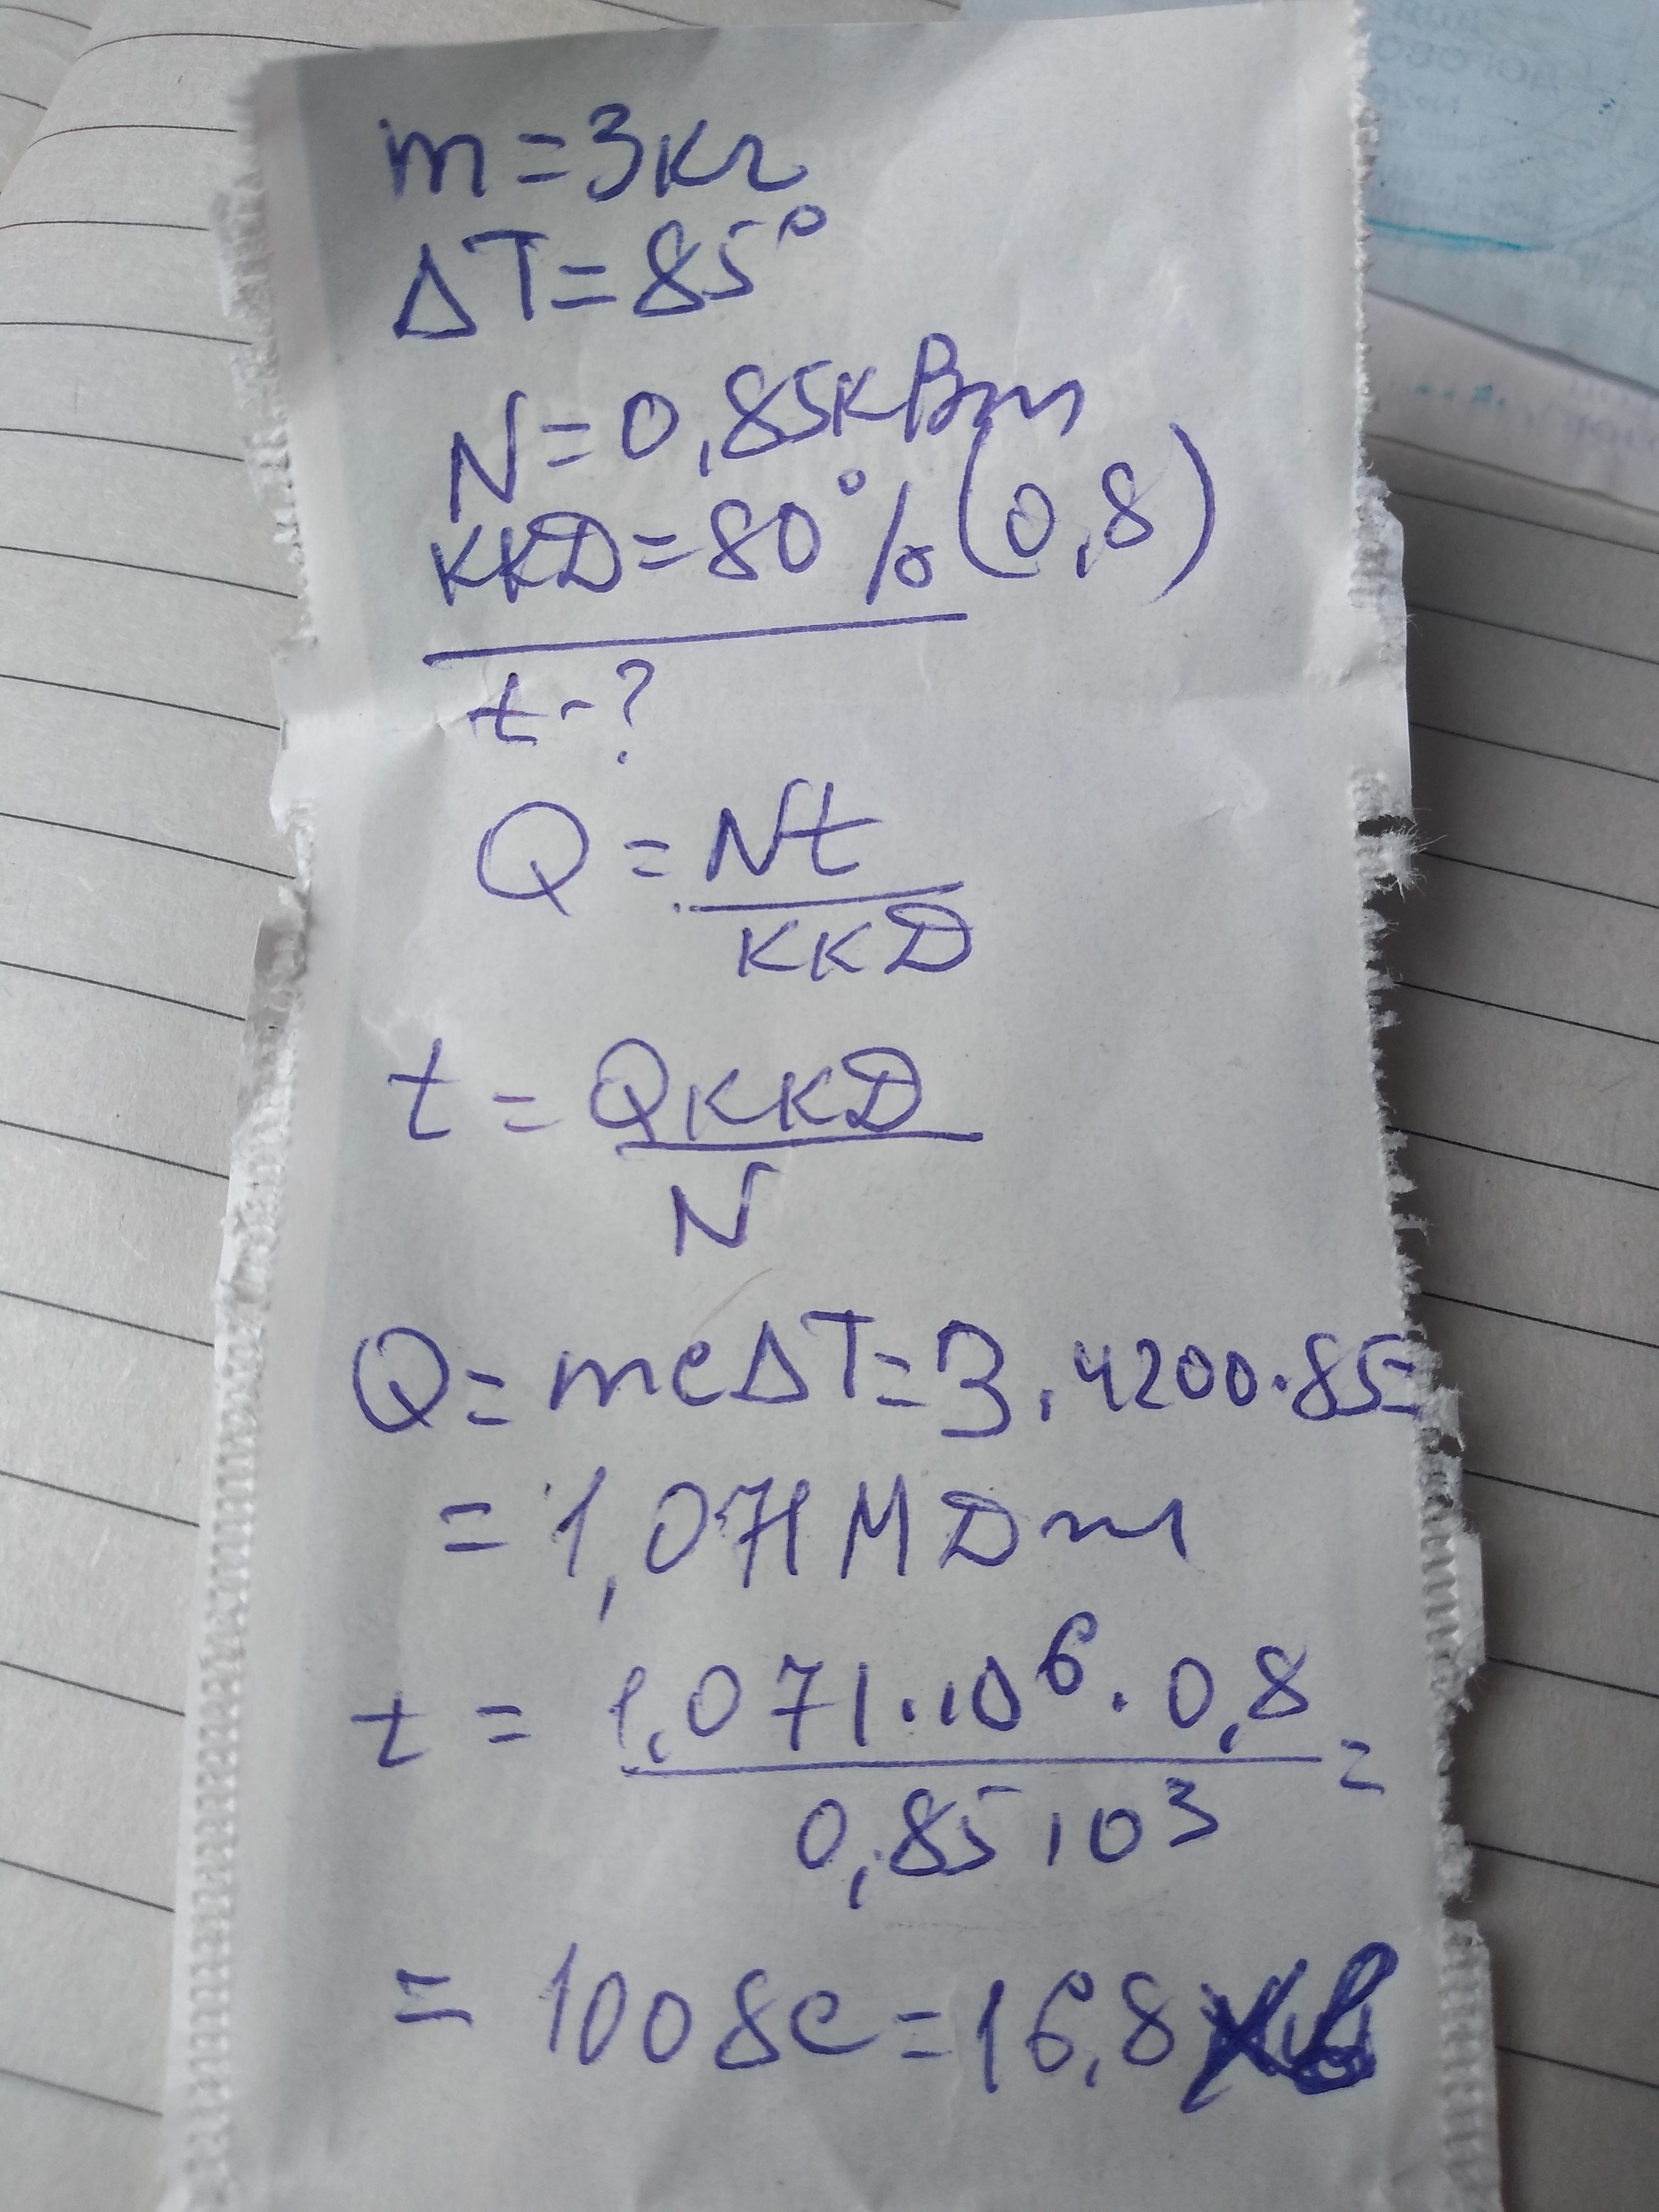 m=3кг
ΔT=85°
N=0,85кВт
ККД=80%(0,8)
t-?
Q=Nt
ККД
t=QККД
N
Q=mcΔT=3.4200.85=
=1,071МДж
t=1,071.10⁶.0,8=
0,85 10³
=1008с=16,8